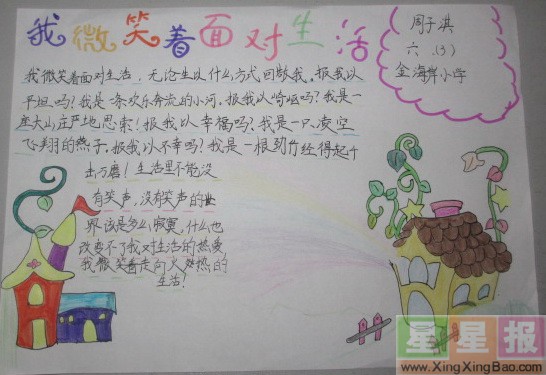 我微笑着面对生活
周子淇
六.(3)
金海岸小学
我微笑着面对生活,无论生以什么方式回敬我。报我以
平坦吗?我是一条欢乐奔流的小河。报我以崎岖吗?我是一
座大山庄严地思索!报我以幸福吗?我是一只凌空
飞翔的燕子。报我以不幸吗?我是一根劲竹经得起千
击万磨!生活里不能没
有笑声,没有笑声的世
界该是多么寂寞,什么也
改变不了我对生活的热爱
我微笑着走向火热的
生活!
星星报
www.XingXingBao.com